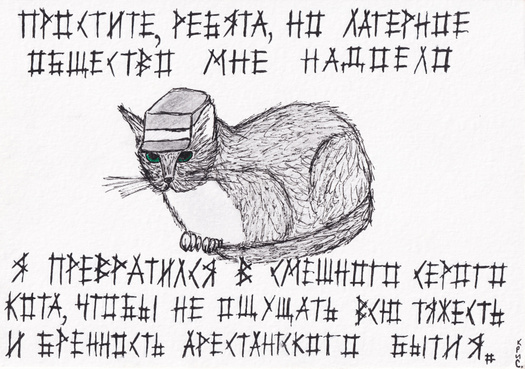 ПРОСТИТЕ, РЕБЯТА, НО ЛАГЕРНОЕ
ОБЩЕСТВО МНЕ НАДОЕЛО
Я ПРЕВРАТИЛСЯ В СМЕШНОГО СЕРОГО
КОТА, ЧТОБЫ НЕ ОЩУЩАТЬ ВСЮ ТЯЖЕСТЬ
И БРЕННОСТЬ АРЕСТАНТСКОГО БЫТИЯ..
КРИС.